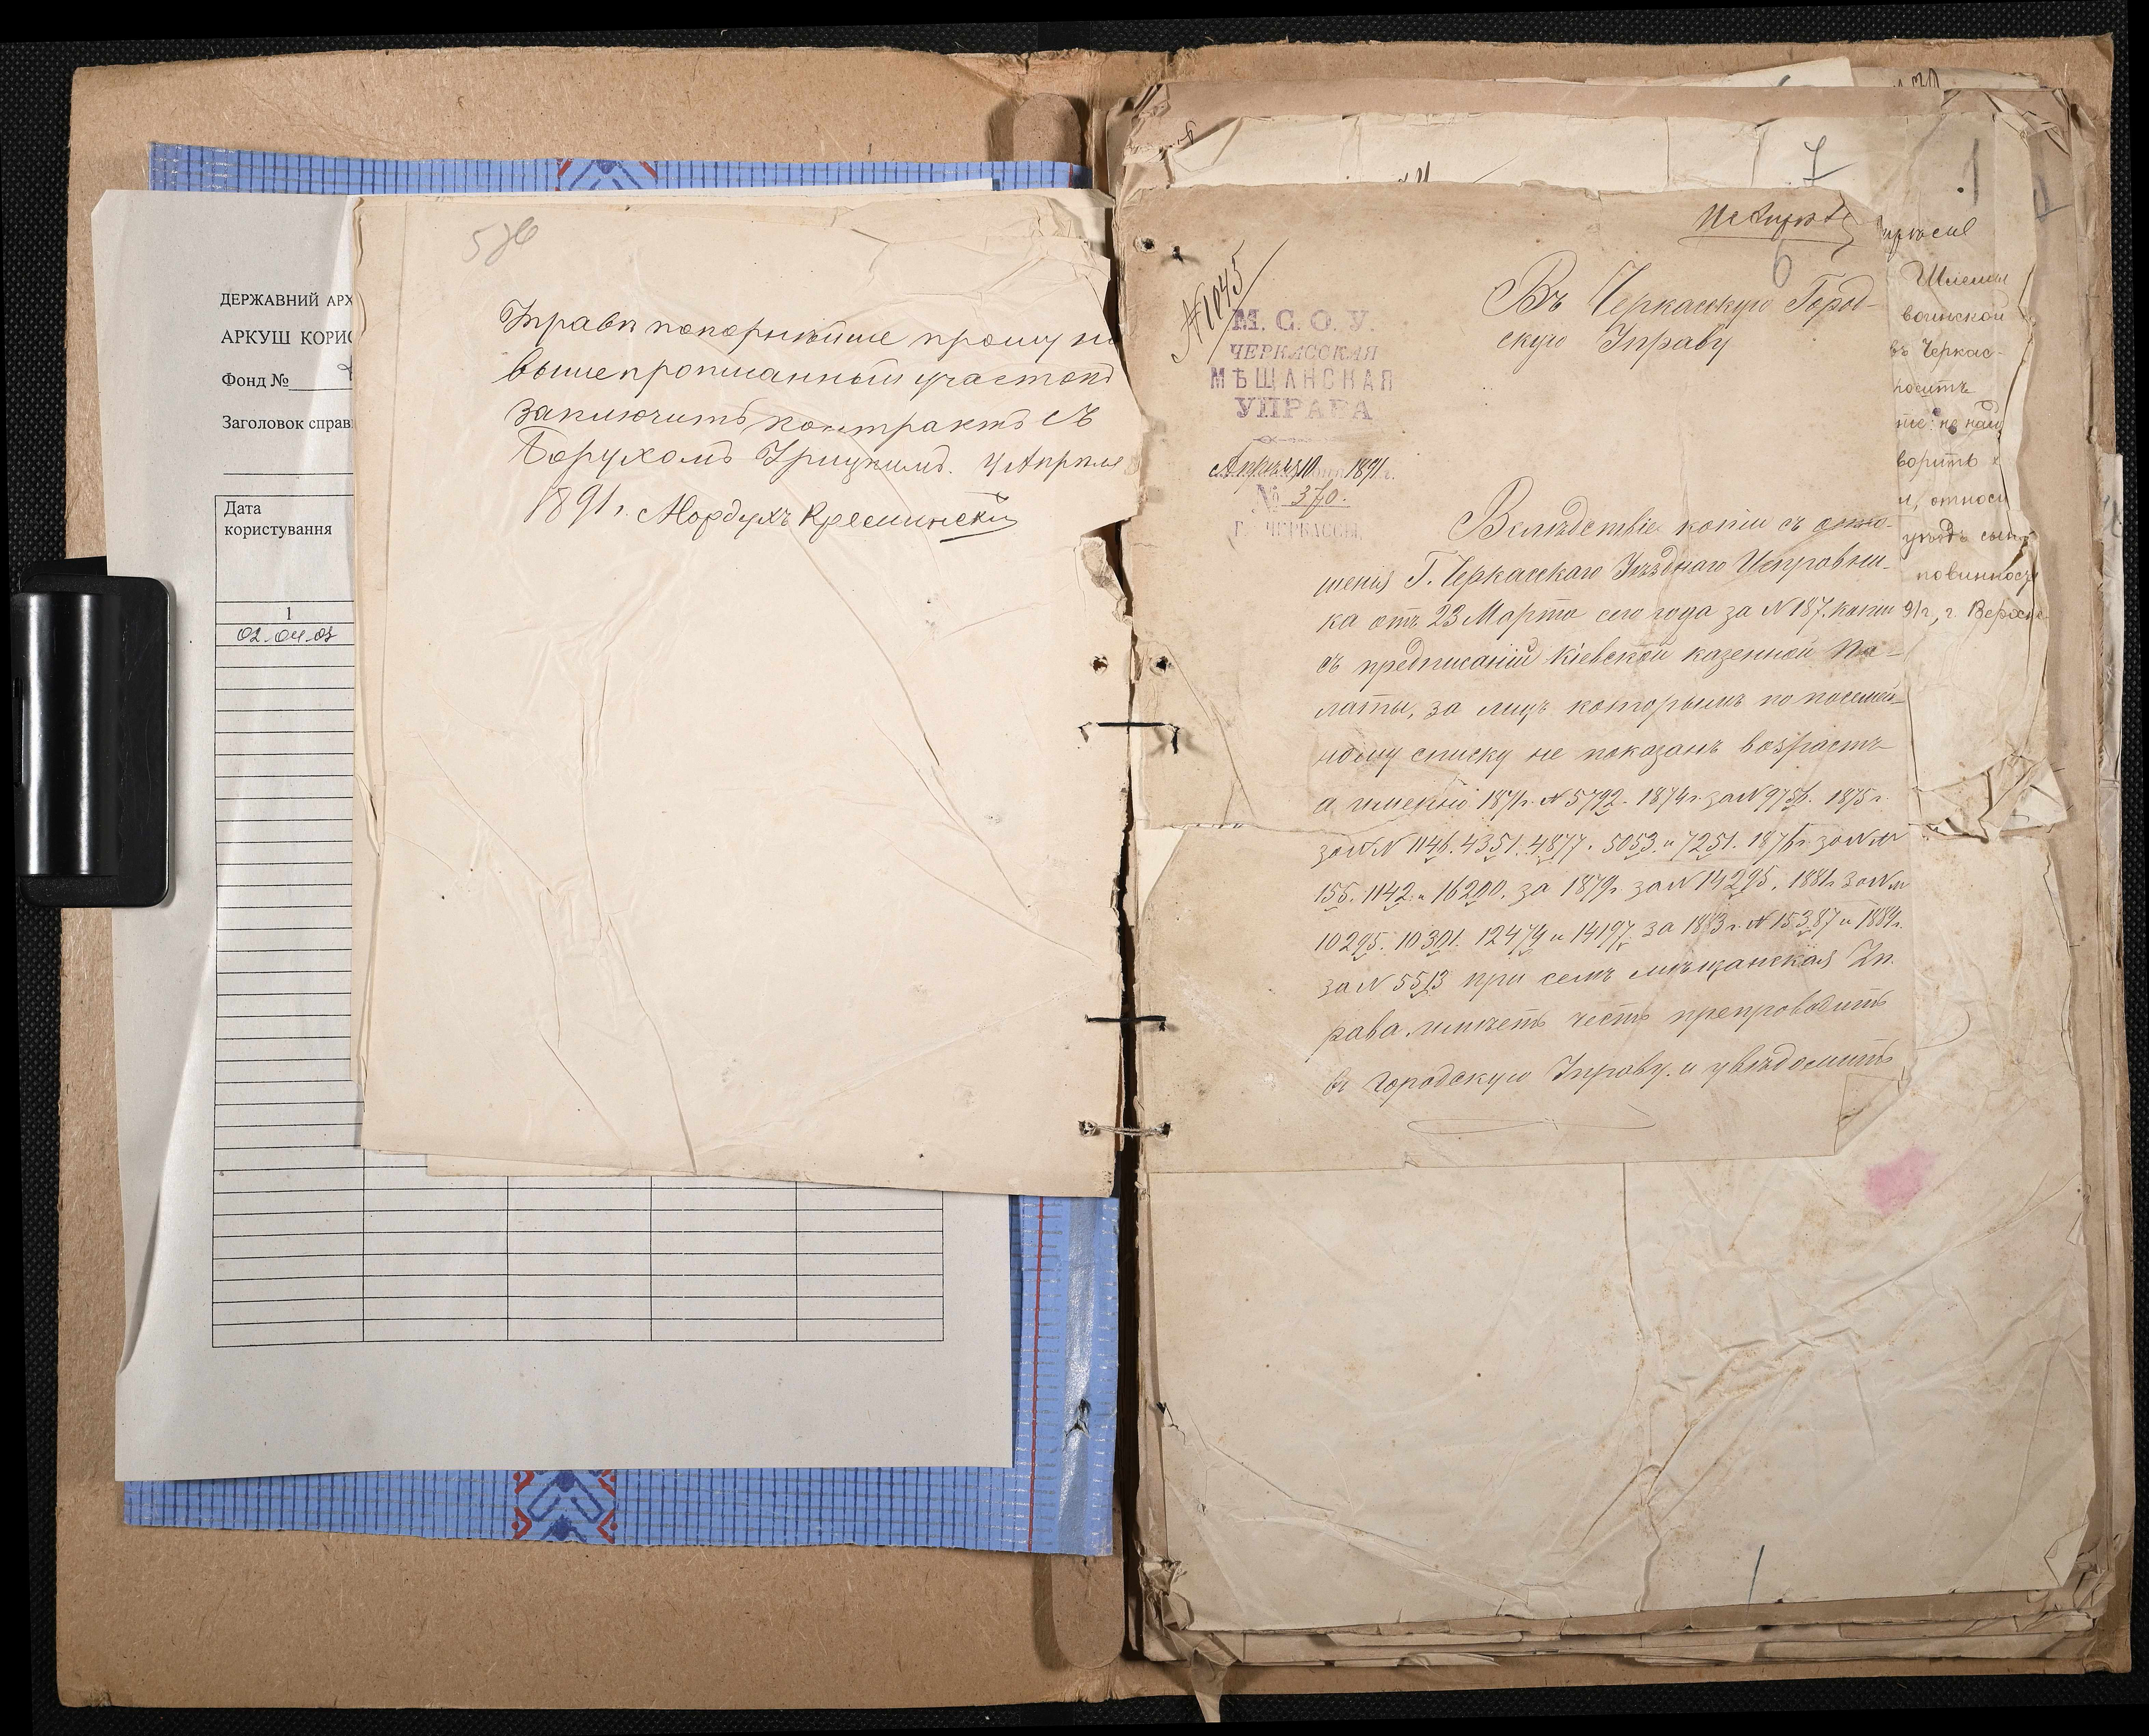 ДЕРЖАВНИЙ АРХ
АРКУШ КОРИС
Фонд №
Заголовок справ
Дата
користування
1
02.04.03
Управи покорнѣйше прошу на
вышепрописанный участокъ
заключить контрактъ съ
Борухомъ Урицкимъ. 4 Апрѣля
1891 г. Мордухъ Креминскій
7
1
6
№ 1045
М. С. О. У.
ЧЕРКАССКАЯ
МѢЩАНСКАЯ
УПРАВА
Апрѣля 10 дня 1891 г.
№ 370.
Г. ЧЕРКАССЫ.
Въ Черкасскую Город-
скую Управу
Вслѣдствіе копіи съ отно-
шенія Г. Черкасскаго Уѣзднаго Исправни-
ка отъ 23 Марта сего года за № 187. копіи
съ предписаній Кіевской казенной Па-
латы, за лицъ которымъ по посемей-
ному списку не показанъ возрастъ
а именно 1871 г. № 5792. 1874 г. за № 9756. 1875 г.
за №№ 1146. 4351. 4877. 5053. и 7251. 1876 г. за №№
155. 1142. и 16200. за 1879 г. за № 14295. 1881 г. за №№
10295. 10301. 12474 и 14197. за 1883 г. № 15387 и 1884 г.
за № 5513 при семъ мѣщанская Уп-
рава имѣетъ честь препроводить
въ Городскую Управу. и увѣдомить
Шлемы
воинской
въ Черкас-
носить
ворить
и, относи
повинносу
91 г., г.